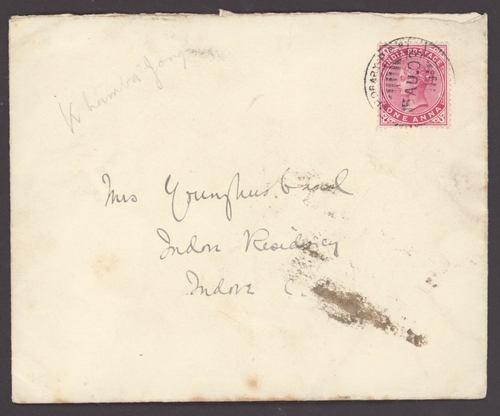 Khamba Jong
INDIA POSTAGE
ONE ANNA
5 AU.0
Mrs Younghusband
Indore Residency
Indore C.